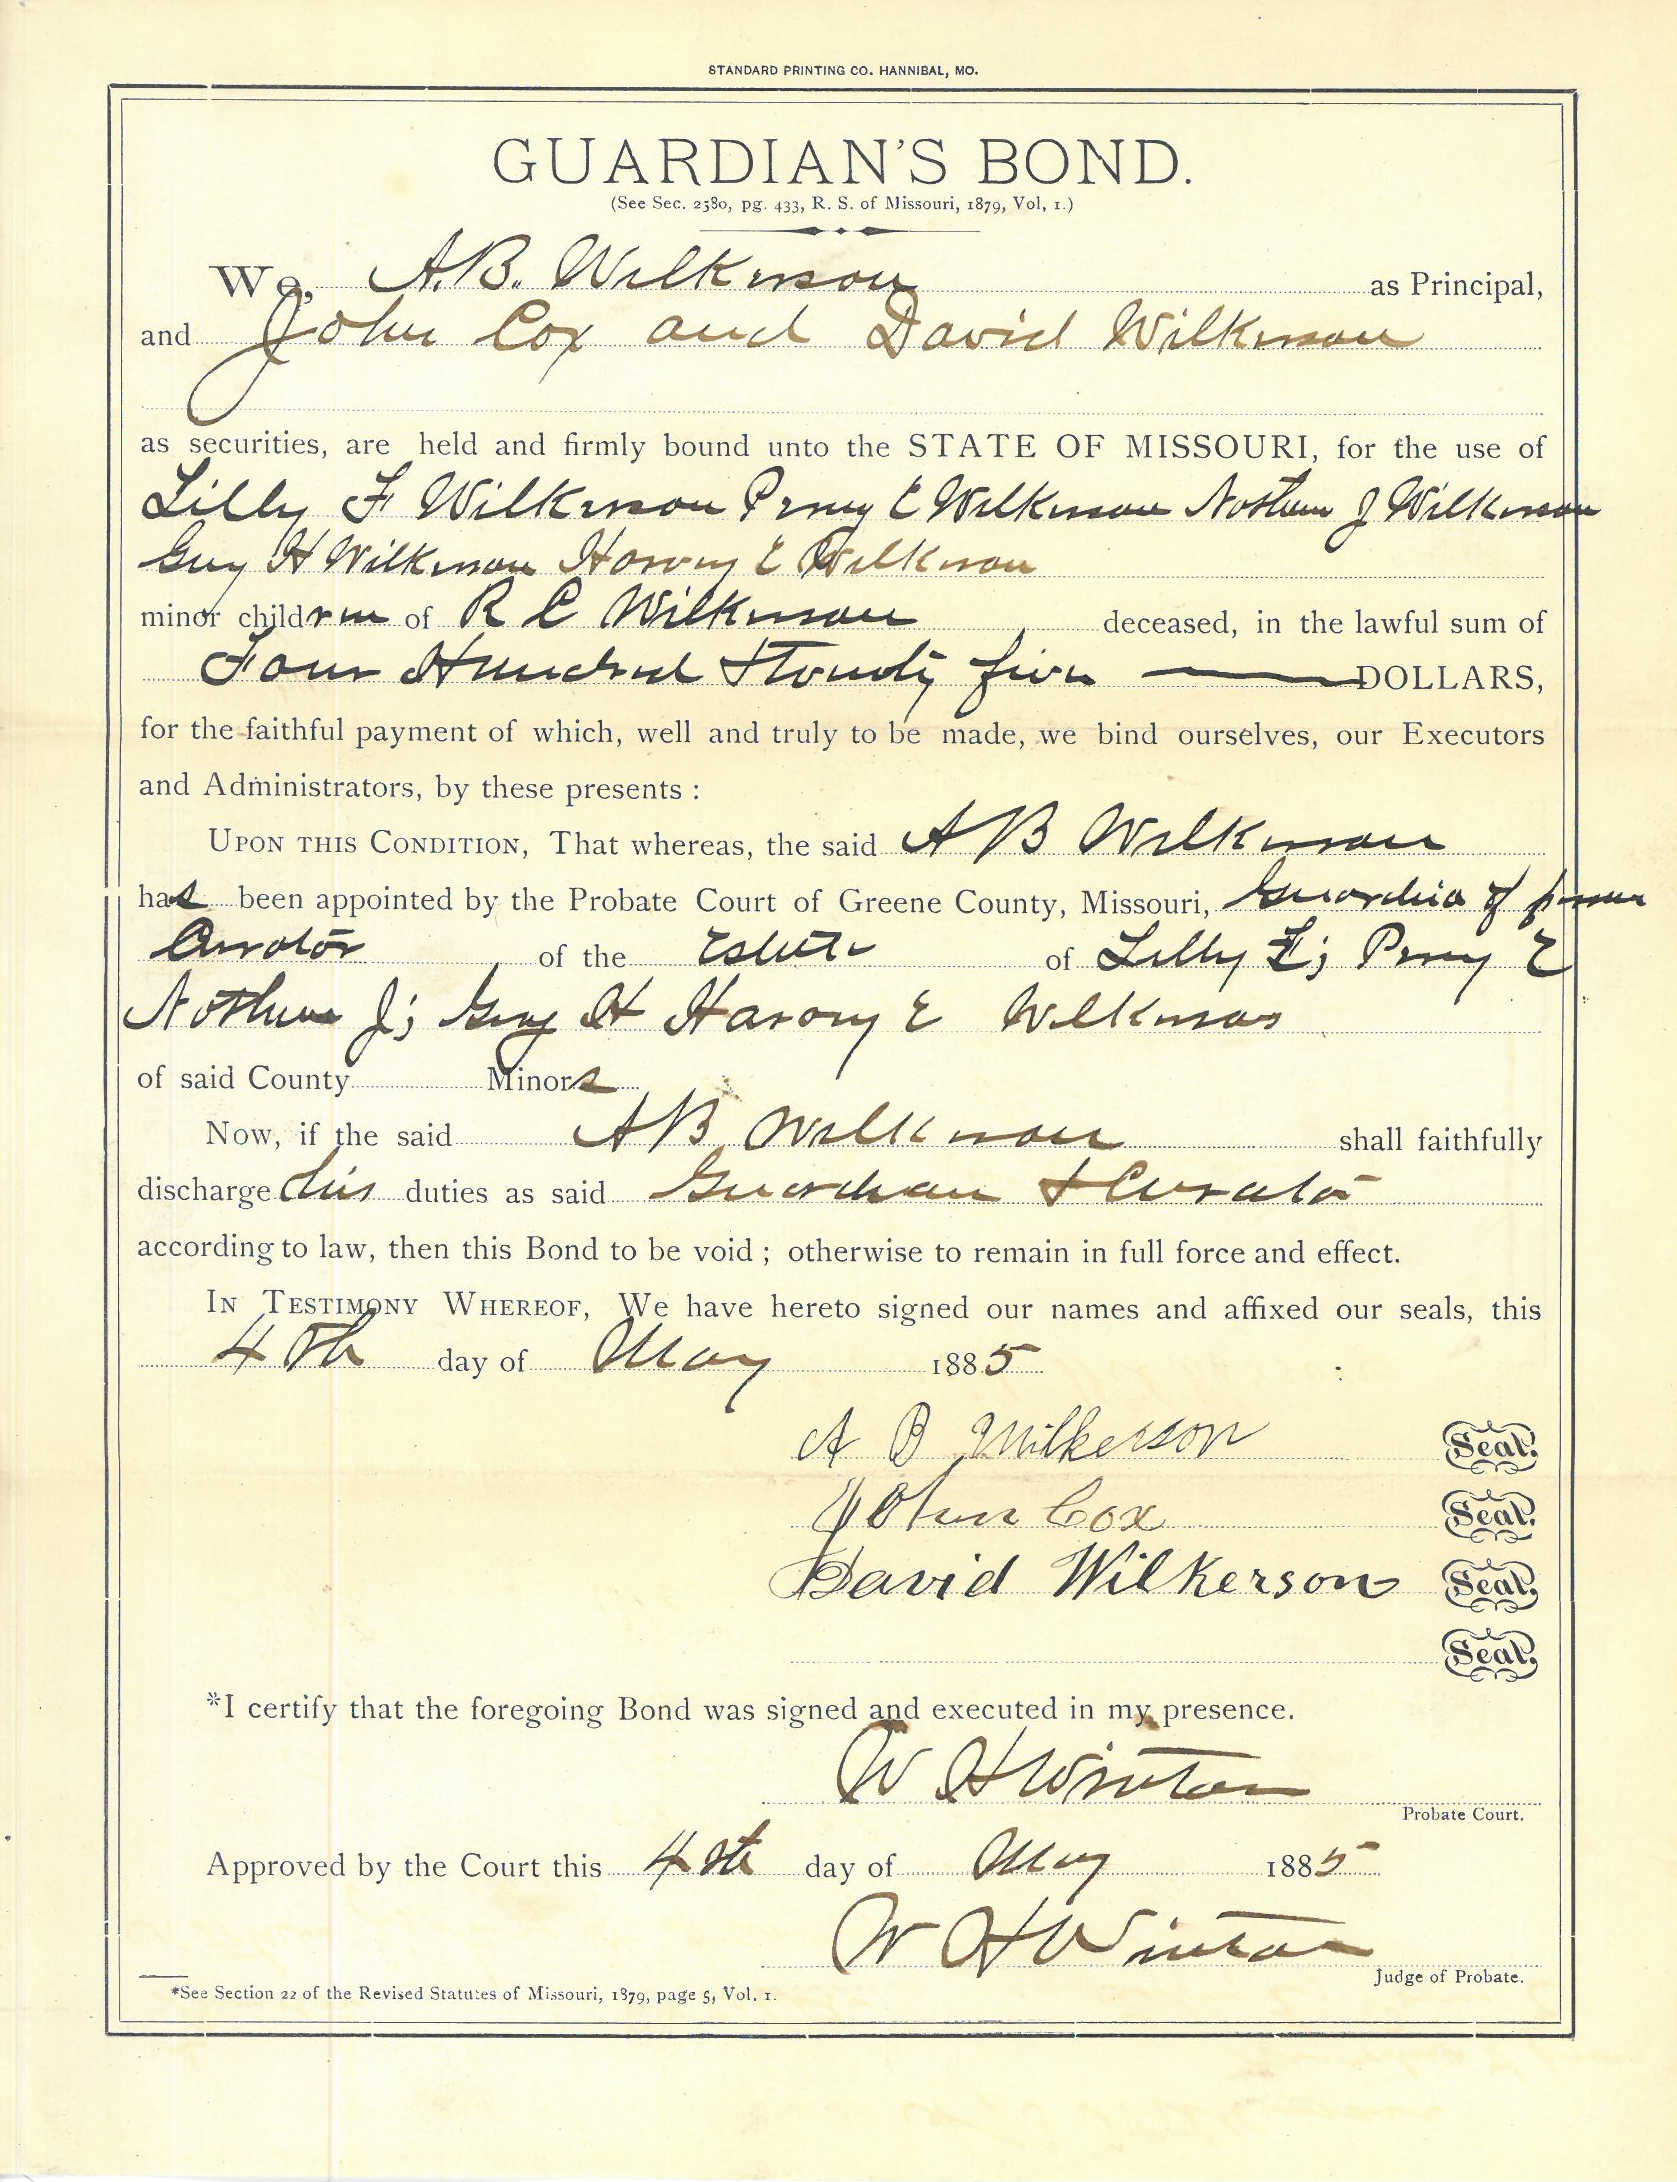 STANDARD PRINTING CO. HANNIBAL, MO.
GUARDIAN'S BOND.
(See Sec. 2580, pg. 433, R. S. of Missouri, 1879, Vol, 1.)
We, A.B. Wilkerson as Principal,
and John Cox and David Wilkerson
as securities, are held and firmly bound unto the STATE OF MISSOURI, for the use of
Lilly F Wilkerson E Wilkerson J Wilkerson
Guy H Wilkerson Harvey E Wilkerson
minor children of R C Wilkerson deceased, in the lawful sum of
Four Hundred & Twenty five DOLLARS,
for the faithful payment of which, well and truly to be made, we bind ourselves, our Executors
and Administrators, by these presents :
UPON THIS CONDITION, That whereas, the said A B Wilkerson
has been appointed by the Probate Court of Greene County, Missouri, of
Curator of the Estate of Lilly F; E
J; Guy H Harvey E Wilkerson
of said County Minors
Now, if the said A B Wilkerson shall faithfully
discharge his duties as said Guardian & Curator
according to law, then this Bond to be void ; otherwise to remain in full force and effect.
IN TESTIMONY WHEREOF, We have hereto signed our names and affixed our seals, this
4th day of May 1885
A B Wilkerson Seal.
John Cox Seal.
David Wilkerson Seal.
Seal.
*I certify that the foregoing Bond was signed and executed in my presence.
W H Winton
Probate Court.
Approved by the Court this 4th day of May 1885
W H Winton
Judge of Probate.
*See Section 22 of the Revised Statutes of Missouri, 1879, page 5, Vol. 1.